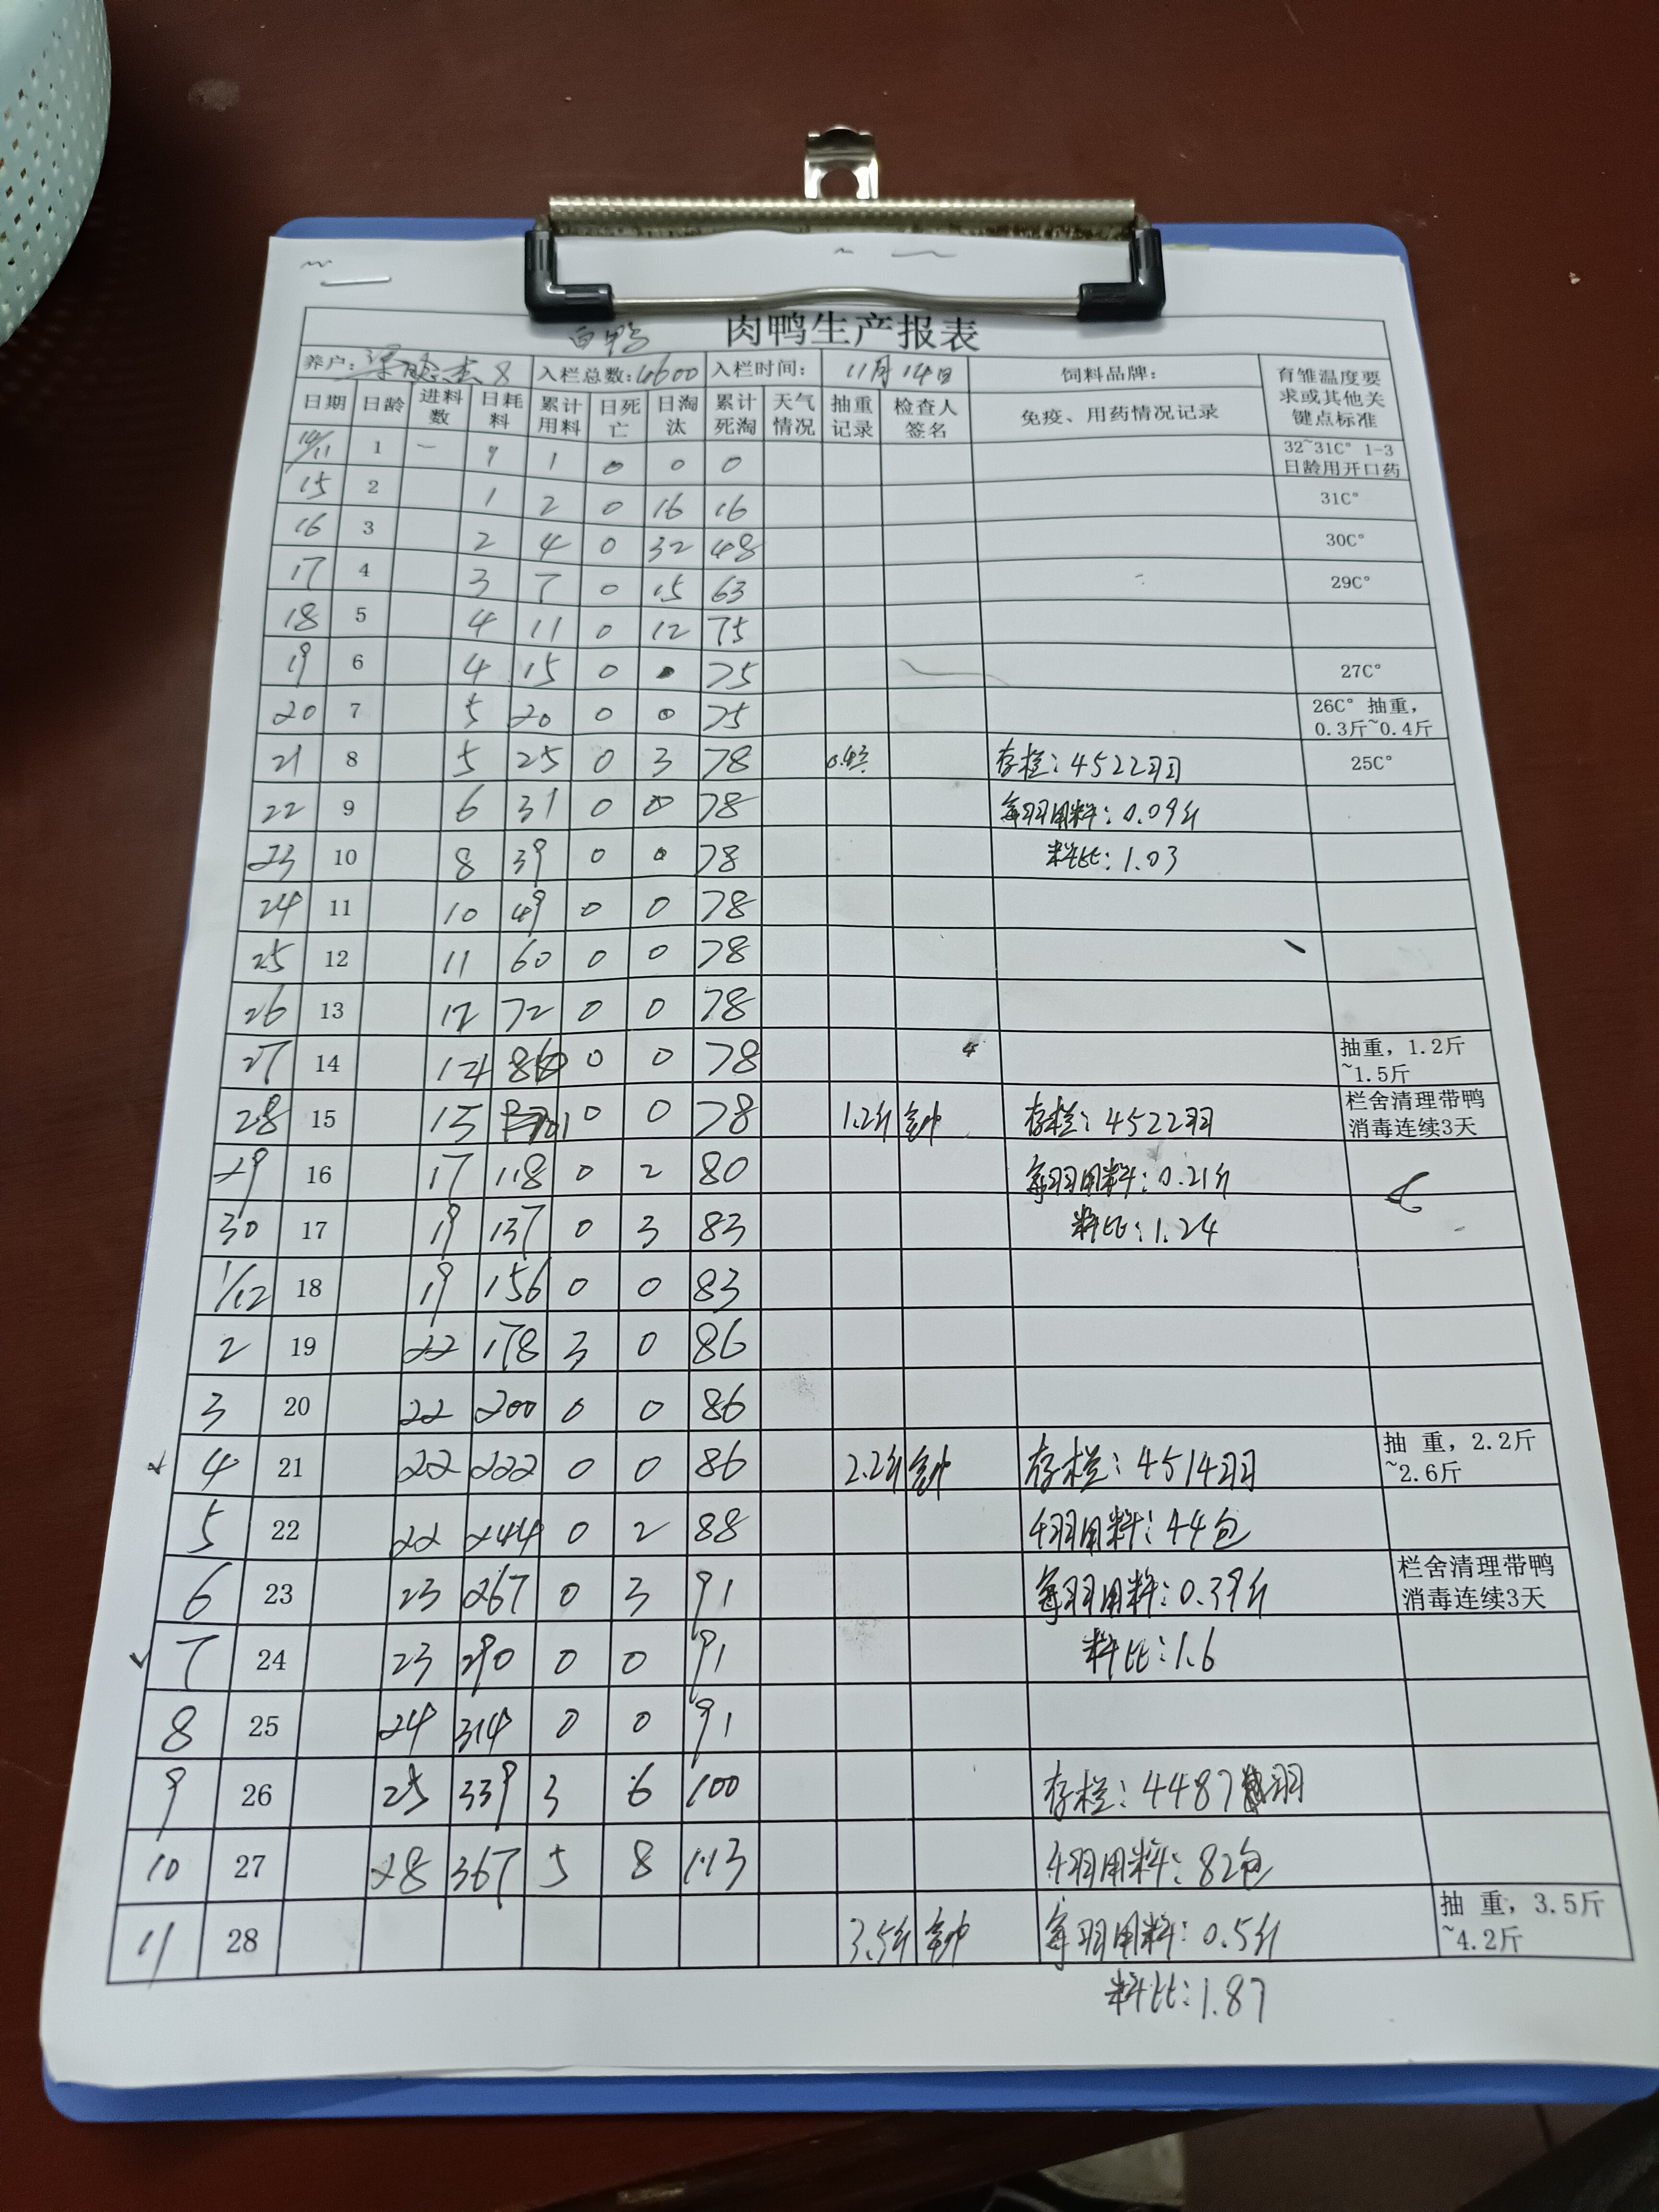 白鸭 肉鸭生产报表
养户: 8 入栏总数:4600 入栏时间: 11月14日 饲料品牌: 育雏温度要求或其他关键点标准
日期 日龄 进料数 日耗料 累计用料 日死亡 日淘汰 累计死淘 天气情况 抽重记录 检查人签名 免疫、用药情况记录
14/11 1 一 1 1 0 0 0 32~31C° 1-3日龄用开口药
15 2 1 2 0 16 16 31C°
16 3 2 4 0 32 48 30C°
17 4 3 7 0 15 63 29C°
18 5 4 11 0 12 75
19 6 4 15 0 75 27C°
20 7 5 20 0 0 75 26C° 抽重,0.3斤~0.4斤
21 8 5 25 0 3 78 存栏:4522羽 25C°
22 9 6 31 0 0 78 每羽用料:0.09斤
23 10 8 39 0 0 78 料比:1.03
24 11 10 49 0 0 78
25 12 11 60 0 0 78
26 13 12 72 0 0 78
27 14 14 86 0 0 78 抽重,1.2斤~1.5斤
28 15 15 101 0 0 78 1.2斤 存栏:4522羽 栏舍清理带鸭消毒连续3天
29 16 17 118 0 2 80 每羽用料:0.21斤
30 17 19 137 0 3 83 料比:1.24
1/12 18 19 156 0 0 83
2 19 22 178 3 0 86
3 20 22 200 0 0 86
4 21 22 222 0 0 86 2.2斤 存栏:4514羽 抽 重,2.2斤~2.6斤
5 22 22 244 0 2 88 千羽用料:44包
6 23 23 267 0 3 91 每羽用料:0.39斤 栏舍清理带鸭消毒连续3天
7 24 23 290 0 0 91 料比:1.6
8 25 24 314 0 0 91
9 26 25 339 3 6 100 存栏:4487羽
10 27 28 367 5 8 113 千羽用料:82包
11 28 3.5斤 每羽用料:0.5斤 抽 重,3.5斤~4.2斤
料比:1.87